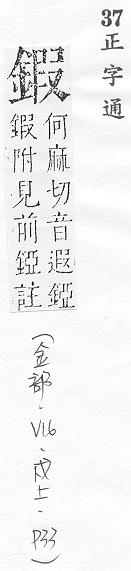 37
正字通
鍜
何麻切音遐錏
鍜附見前錏註
(金部·V16·戌上·P33)